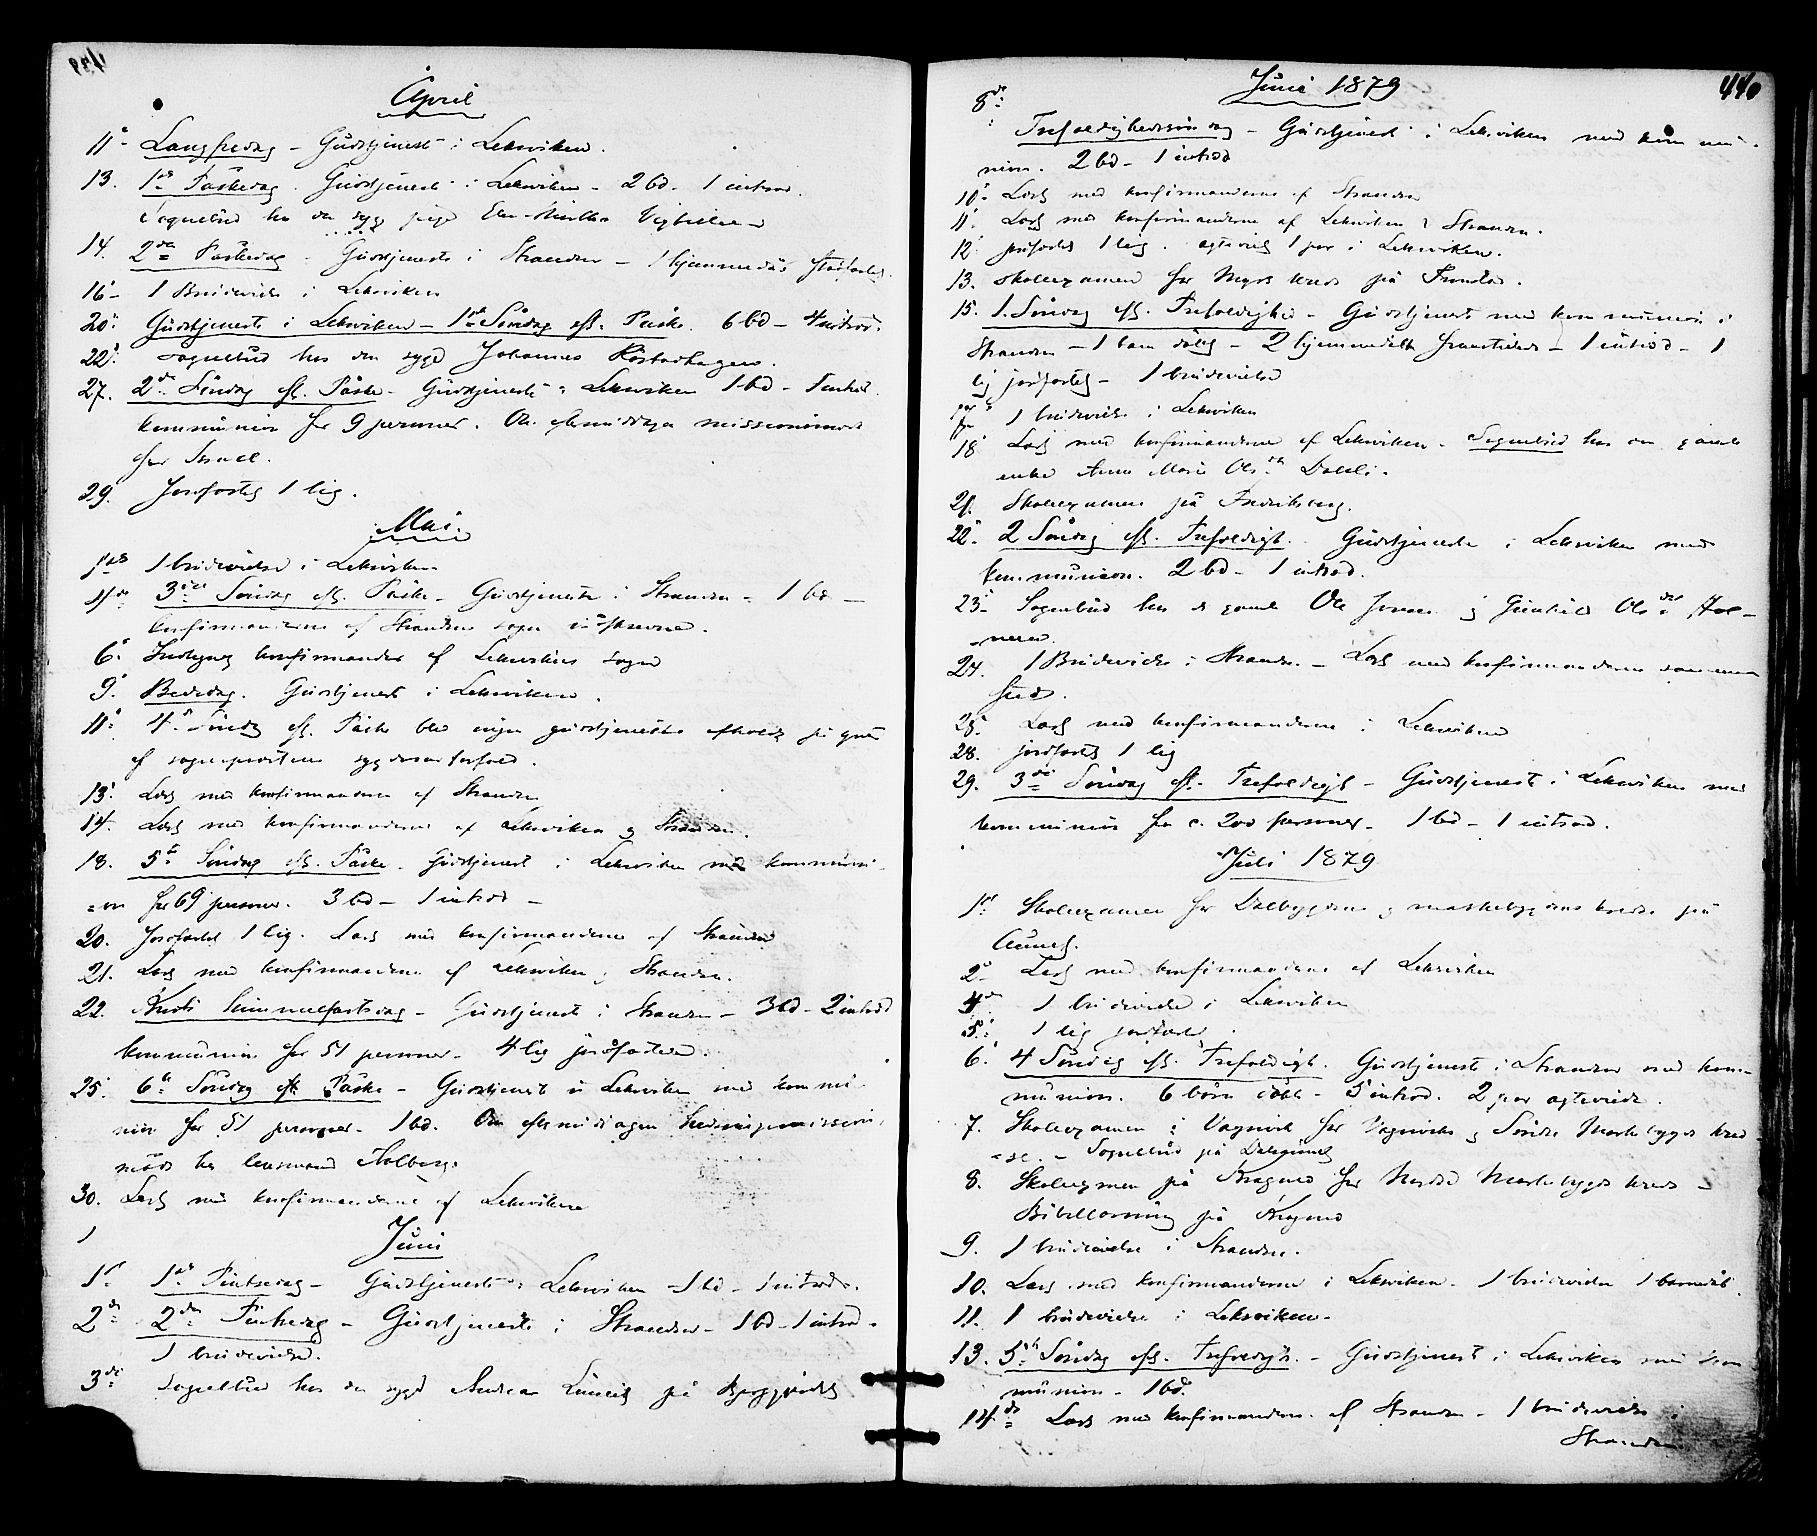 439
April
11te Langfredag – Gudstjeneste i Leksviken.
13. 1ste Påskedag. Gudstjeneste i Leksviken – 2 bd. 1 introd.
Sognebud hos den syge pige
14. 2den Påskedag – Gudstjeneste i Stranden – 1 hjemmedøbt
16 – 1 Brudevielse i Leksviken
20. Gudstjeneste i Leksviken – 1ste Søndag eft. Påske. 6 bd – 4 introd.
22. Sognebud hos den syge Johannes
27. 2den Søndag eft. Påske – Gudstjeneste i Leksviken 1 bd – 1 introd.
kommunion for 9 personer. Om eftermiddagen missionsmøde
for Israel.
29. Jordfæstet 1 lig.
Mai.
1ste 1 brudevielse i Leksviken
4de 3die Søndag eft. Påske – Gudstjeneste i Stranden – 1 bd –
konfirmanderne af Strandens sogn indskrevne.
6. konfirmander af Leksvikens sogn
9. Bededag. Gudstjeneste i Leksviken.
11. 4. Søndag eft. Påske blev ingen gudstjeneste afholdt på grund
af sognepræstens sygdomsforfald.
13. Læst med konfirmanderne af Stranden
14. Læst med konfirmanderne af Leksviken og Stranden.
18. 5te Søndag eft. Påske. Gudstjeneste i Leksviken med kommuni-
=on for 69 personer. 3 bd – 1 introd –
20. Jordfæstet 1 lig. Læst med konfirmanderne af Stranden
21. Læst med konfirmanderne af Leksviken og Stranden.
22. Kristi himmelfartsdag – Gudstjeneste i Stranden – 3 bd – 2 introd
kommunion for 51 personer – 4 lig jordfæstede.
25. 6te Søndag eft Påske – Gudstjeneste i Leksviken med kommu-
nion for 51 personer. 1 bd. Om eftermiddagen hedningemissions-
møde hos lensmand Solberg.
30. Læst med konfirmanderne af Leksviken
Juni
1ste 1ste Pintsedag – Gudstjeneste i Leksviken – 1 bd – 1 introd.
2den 2den Pintsedag – Gudstjeneste i Stranden – 1 bd – 1 introd –
1 brudevielse.
3die Sognebud hos den syge Andreas på
440
Juni 1879
8de Trefoldighedssøndag – Gudstjeneste i Leksviken med kommu-
nion. 2 bd – 1 introd
10. Læst med konfirmanderne af Stranden
11. Læst med konfirmanderne af Leksviken & Stranden.
12. jordfæstet 1 lig. ægteviet 1 par i Leksviken.
13. Skoleexamen for kreds på
15. 1. Søndag eft. Trefoldighed – Gudstjeneste med kommunion i
Stranden – 1 barn døbt – 2 hjemmedøbte fremstillede – 1 introd – 1
lig jordfæstet – 1 brudevielse
1 brudevielse i Leksviken
18 Læst med konfirmanderne af Leksviken – Sognebud hos den gamle
enke Anna Marie Olsdtr
21. Skoleexamen på Fredriksberg.
22. 2 Søndag eft. Trefoldigh. Gudstjeneste i Leksviken med
kommunion. 2 bd – 1 introd.
23. Sognebud hos de gamle Ole Jensen og Gunhild Olsdtr
24. 1 Brudevielse i Stranden – Læst med konfirmanderne samme-
sted.
25. Læst med konfirmanderne i Leksviken
28. jordfæstet 1 lig
29. 3die Søndag eft. Trefoldigh – Gudstjeneste i Leksviken med
kommunion for c. 200 personer – 1 bd – 1 introd.
Juli 1879
1ste Skoleexamen for Dalbygdens og kreds på
Aunet.
2. Læst med konfirmanderne af Leksviken
4de 1 brudevielse i Leksviken
5. 1 lig jordfæstet.
6. 4 Søndag eft. Trefoldigh. Gudstjeneste i Stranden med kom-
munion. 6 børn døbt – 5 introd. 2 par ægteviede.
7. Skoleexamen i Vagnvik for Vagnviks og Søndre Markabygds kred-
=se. – Sognebud på
8. Skoleexamen på for Nordre Markabygds kreds –
Bibellæsning på
9. 1 brudevielse i Stranden.
10. Læst med konfirmanderne i Leksviken. 1 brudevielse 1 barnedåb.
11. 1 brudevielse i Leksviken –
13. 5te Søndag eft. Trefoldigh. – Gudstjeneste i Leksviken med kom
munion – 1 bd.
14de Læst med konfirmanderne af Stranden – 1 brudevielse i
Stranden